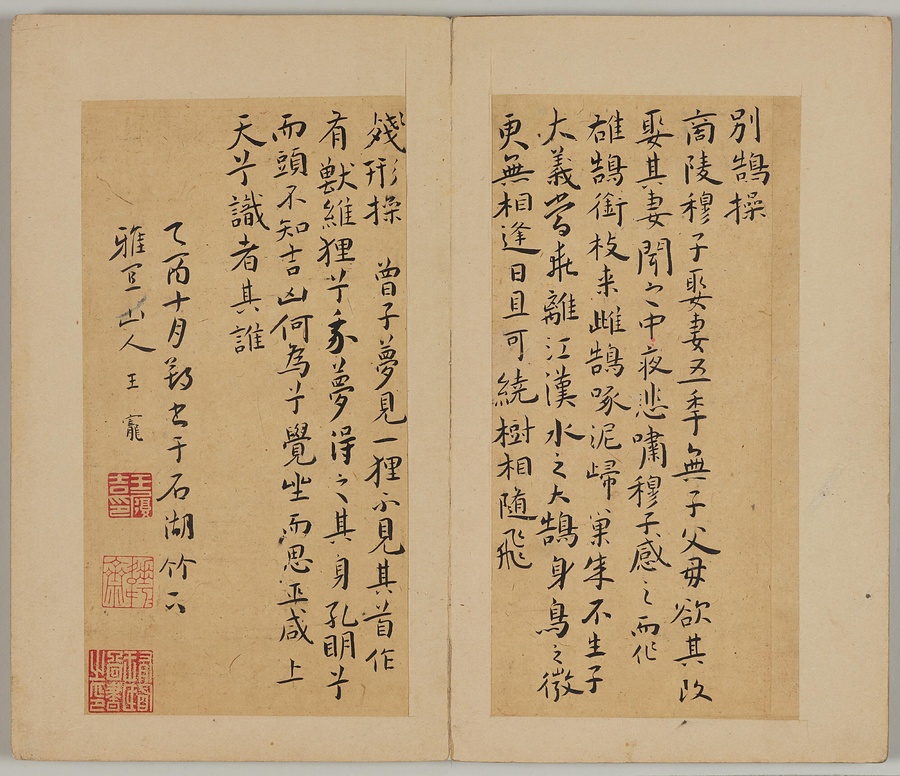 別鵠操
商陵穆子娶妻五年無子父母欲其改
娶其妻聞之中夜悲嘯穆子感之而作
雄鵠銜枝来雌鵠啄泥歸巢成不生子
大義當乖離江漢水之大鵠身鳥之微
更無相逢日且可繞樹相隨飛
殘形操 曾子夢見一狸不見其首作
有獸維狸兮我夢得之其身孔明兮
而頭不知吉凶何為兮覺坐而思巫咸上
天兮識者其誰
乙酉十月朔書于石湖竹下
雅宜山人王寵
王履吉印